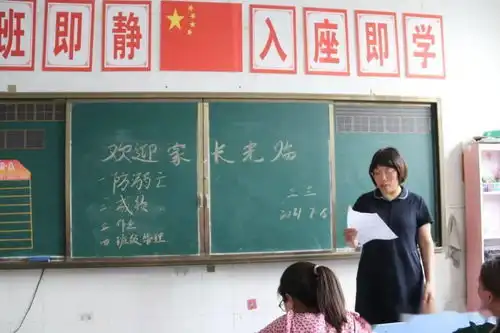 班即静 入座即学
欢迎家长光临
一防溺亡
二.成绩
三.作业
四.班级管理
二.三
2021.7.6